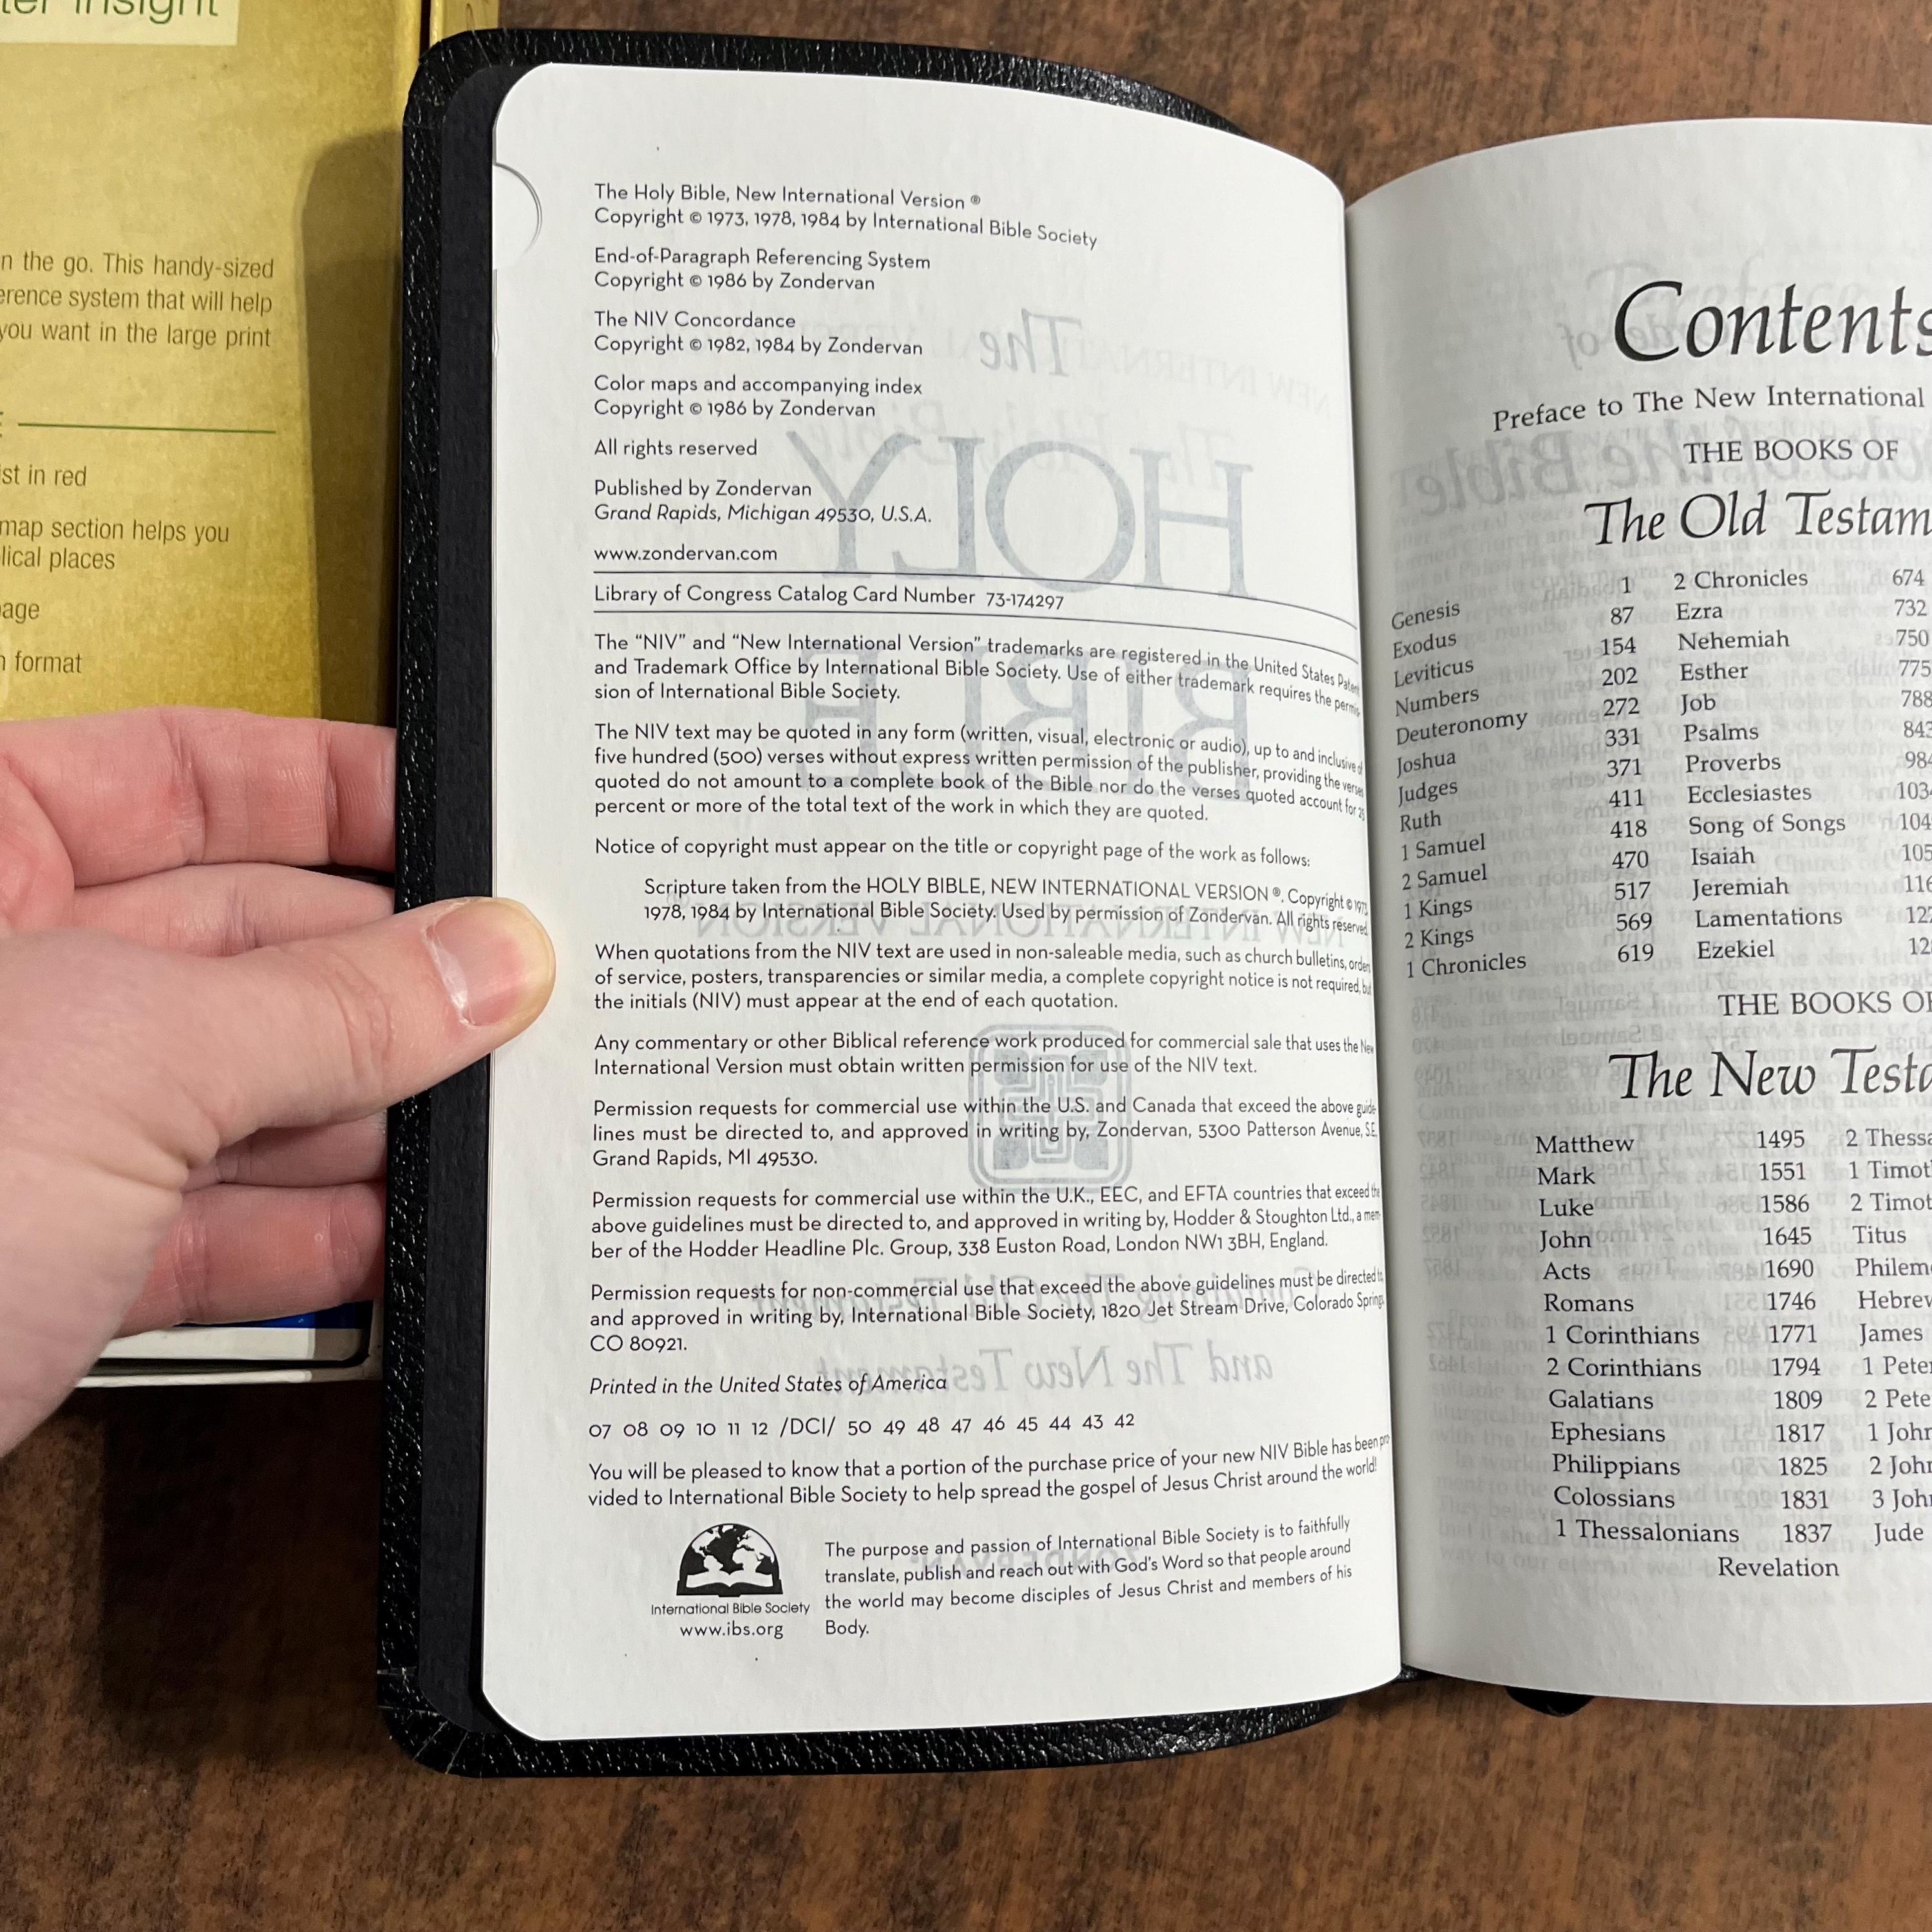 ter insight
n the go. This handy-sized
erence system that will help
you want in the large print
ist in red
map section helps you
lical places
age
n format
The Holy Bible, New International Version ®
Copyright © 1973, 1978, 1984 by International Bible Society
End-of-Paragraph Referencing System
Copyright © 1986 by Zondervan
The NIV Concordance
Copyright © 1982, 1984 by Zondervan
Color maps and accompanying index
Copyright © 1986 by Zondervan
All rights reserved
Published by Zondervan
Grand Rapids, Michigan 49530, U.S.A.
www.zondervan.com
Library of Congress Catalog Card Number 73-174297
The “NIV” and “New International Version” trademarks are registered in the United States Patent
and Trademark Office by International Bible Society. Use of either trademark requires the permis-
sion of International Bible Society.
The NIV text may be quoted in any form (written, visual, electronic or audio), up to and inclusive of
five hundred (500) verses without express written permission of the publisher, providing the verses
quoted do not amount to a complete book of the Bible nor do the verses quoted account for 25
percent or more of the total text of the work in which they are quoted.
Notice of copyright must appear on the title or copyright page of the work as follows:
Scripture taken from the HOLY BIBLE, NEW INTERNATIONAL VERSION ®. Copyright © 1973,
1978, 1984 by International Bible Society. Used by permission of Zondervan. All rights reserved.
When quotations from the NIV text are used in non-saleable media, such as church bulletins, orders
of service, posters, transparencies or similar media, a complete copyright notice is not required, but
the initials (NIV) must appear at the end of each quotation.
Any commentary or other Biblical reference work produced for commercial sale that uses the New
International Version must obtain written permission for use of the NIV text.
Permission requests for commercial use within the U.S. and Canada that exceed the above guide-
lines must be directed to, and approved in writing by, Zondervan, 5300 Patterson Avenue, S.E.,
Grand Rapids, MI 49530.
Permission requests for commercial use within the U.K., EEC, and EFTA countries that exceed the
above guidelines must be directed to, and approved in writing by, Hodder & Stoughton Ltd., a mem-
ber of the Hodder Headline Plc. Group, 338 Euston Road, London NW1 3BH, England.
Permission requests for non-commercial use that exceed the above guidelines must be directed to,
and approved in writing by, International Bible Society, 1820 Jet Stream Drive, Colorado Springs,
CO 80921.
Printed in the United States of America
07 08 09 10 11 12 /DCI/ 50 49 48 47 46 45 44 43 42
You will be pleased to know that a portion of the purchase price of your new NIV Bible has been pro-
vided to International Bible Society to help spread the gospel of Jesus Christ around the world!
International Bible Society
www.ibs.org
The purpose and passion of International Bible Society is to faithfully
translate, publish and reach out with God's Word so that people around
the world may become disciples of Jesus Christ and members of his
Body.
Contents
Preface to The New International
THE BOOKS OF
The Old Testam
Genesis 1 2 Chronicles 674
Exodus 87 Ezra 732
Leviticus 154 Nehemiah 750
Numbers 202 Esther 775
Deuteronomy 272 Job 788
Joshua 331 Psalms 843
Judges 371 Proverbs 984
Ruth 411 Ecclesiastes 1034
1 Samuel 418 Song of Songs 104
2 Samuel 470 Isaiah 105
1 Kings 517 Jeremiah 116
2 Kings 569 Lamentations 122
1 Chronicles 619 Ezekiel 12
THE BOOKS OF
The New Testa
Matthew 1495 2 Thessa
Mark 1551 1 Timot
Luke 1586 2 Timot
John 1645 Titus
Acts 1690 Philem
Romans 1746 Hebrew
1 Corinthians 1771 James
2 Corinthians 1794 1 Peter
Galatians 1809 2 Pete
Ephesians 1817 1 John
Philippians 1825 2 John
Colossians 1831 3 John
1 Thessalonians 1837 Jude
Revelation